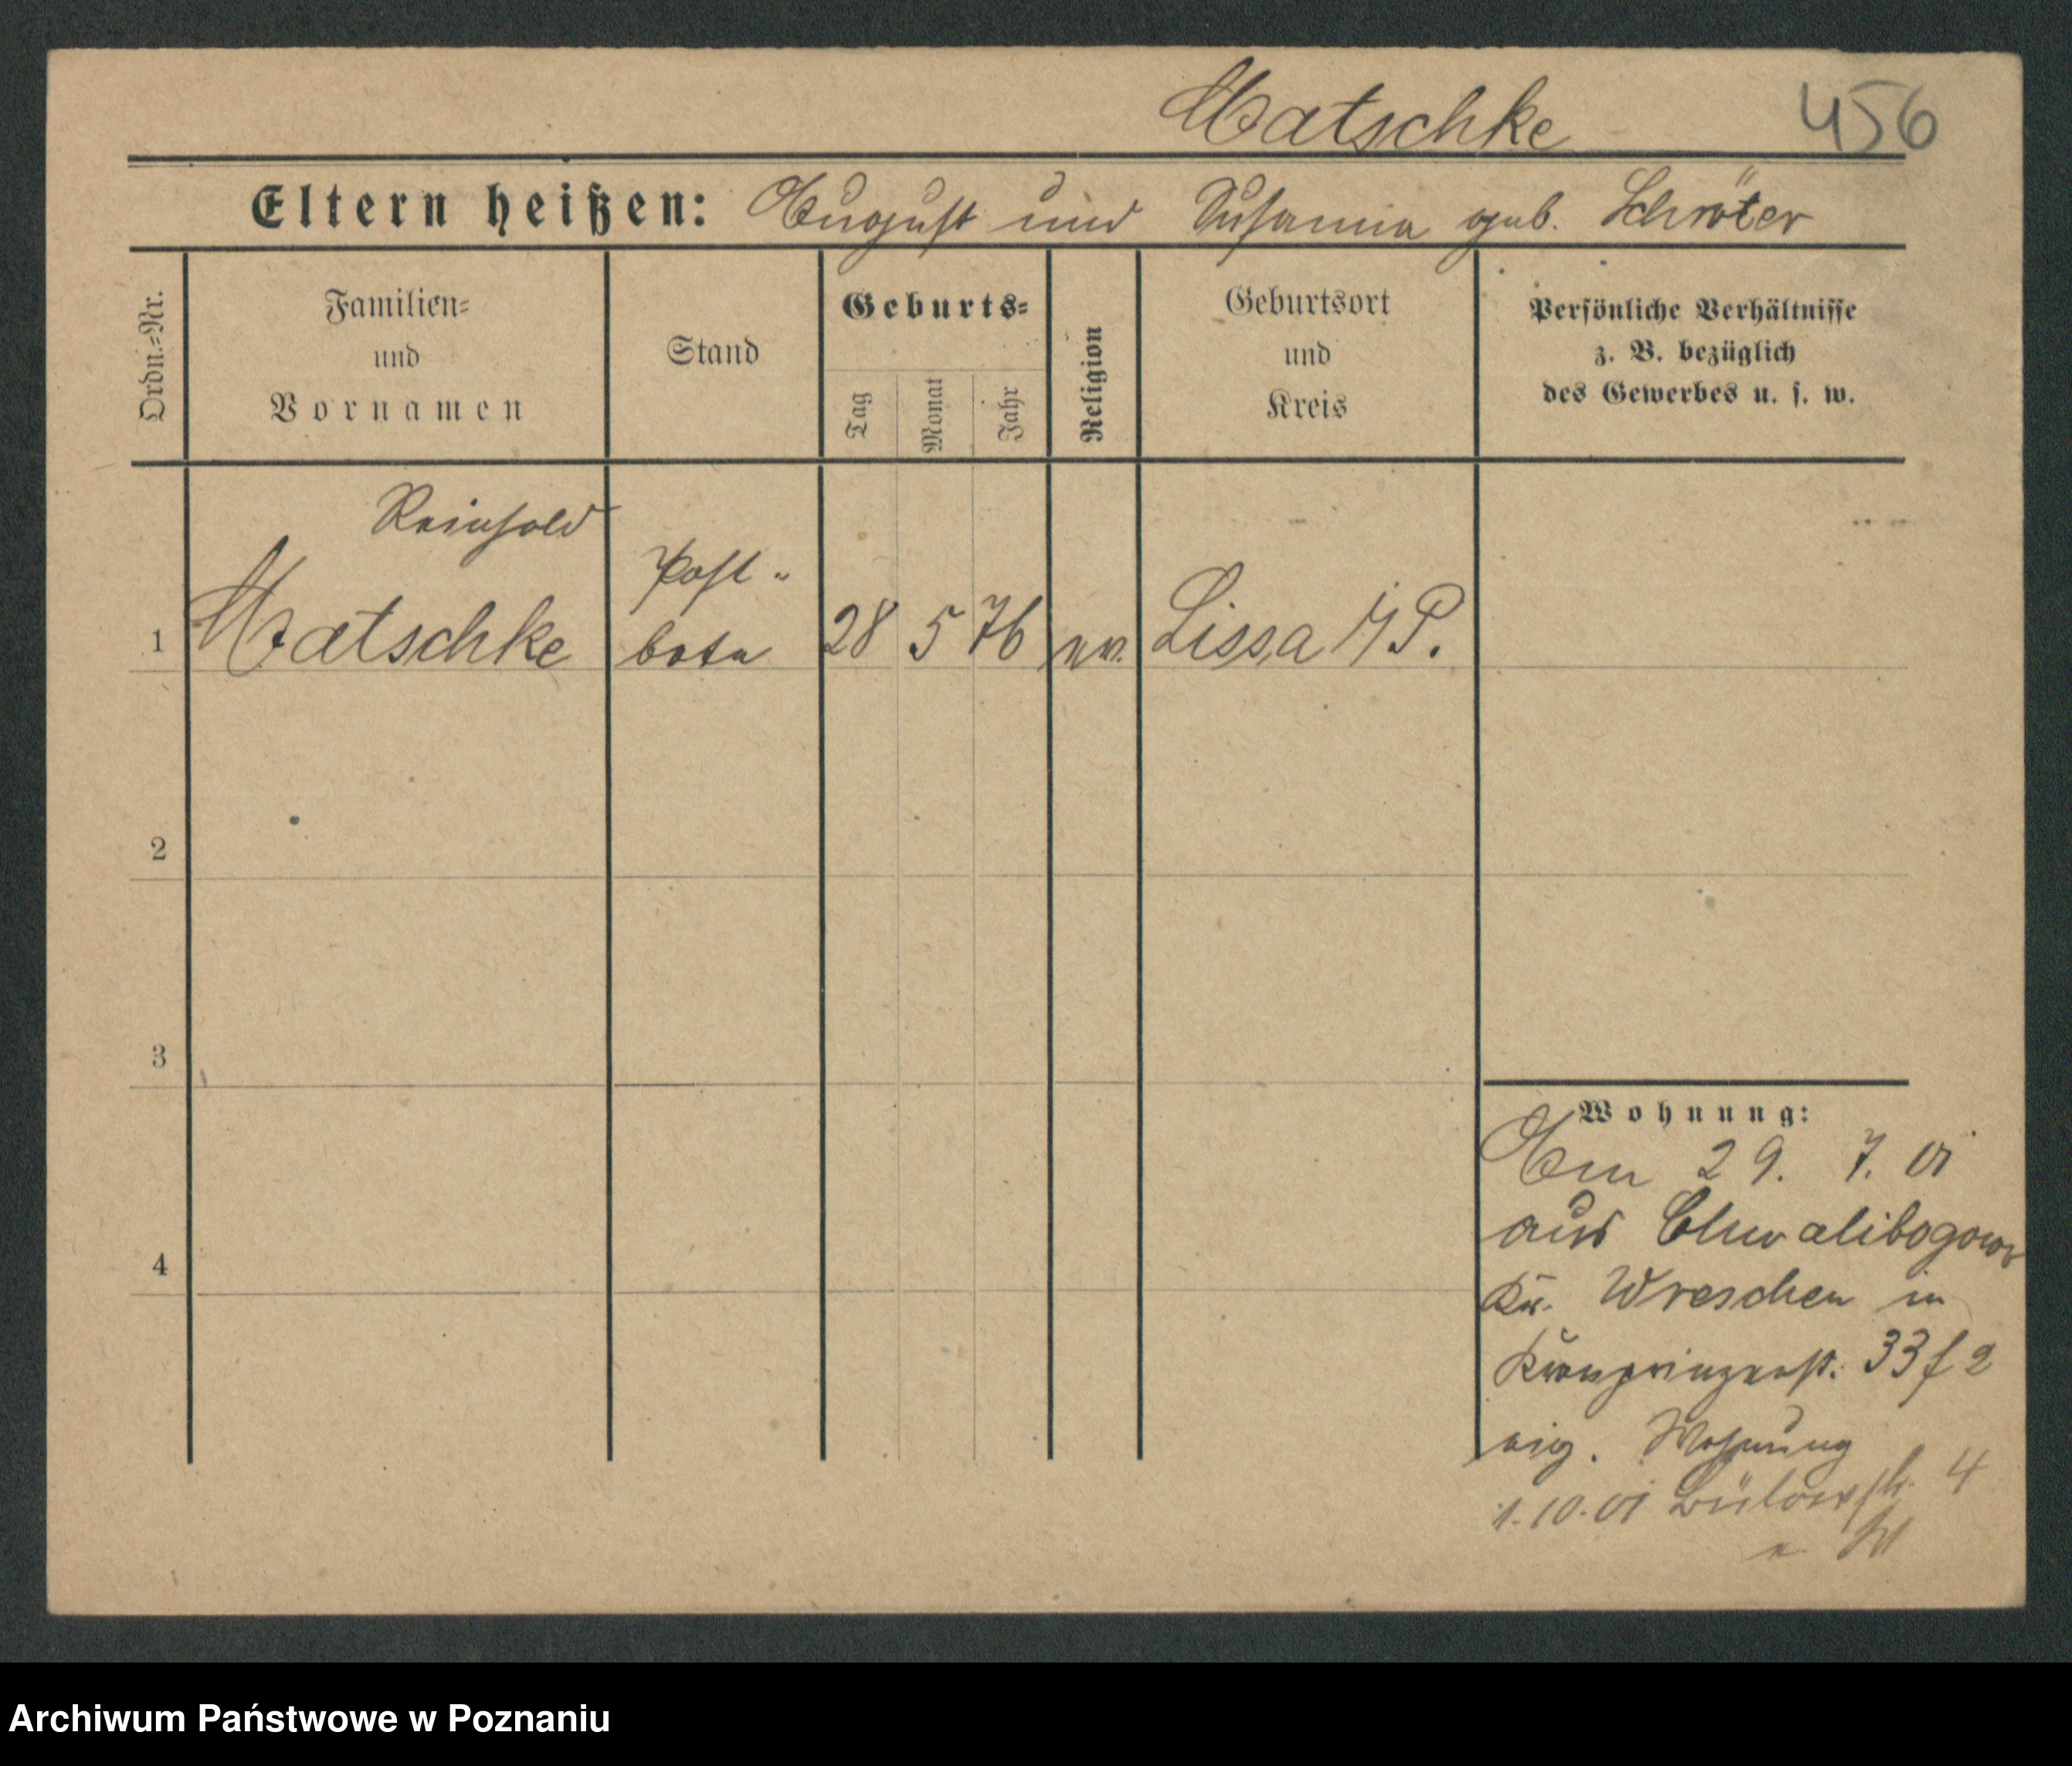 Matschke 456
Eltern heißen: August und Susanna geb. Schröter
Ordn.=Nr.
Familien=
und
Vornamen
Stand
Geburts=
Tag
Monat
Jahr
Religion
Geburtsort
und
Kreis
Persönliche Verhältnisse
z. B. bezüglich
des Gewerbes u. s. w.
Reinhold
Post-
1 Matschke bote 28 5 76 ev. Lissa i/P.
2
3
4
Wohnung:
Am 29. 7. 01
aus Chwalibogowo
Kr. Wreschen in
Kronprinzenst. 33 f 2
eig. Wohnung
1.10.01 Bülowstr. 4
Archiwum Państwowe w Poznaniu